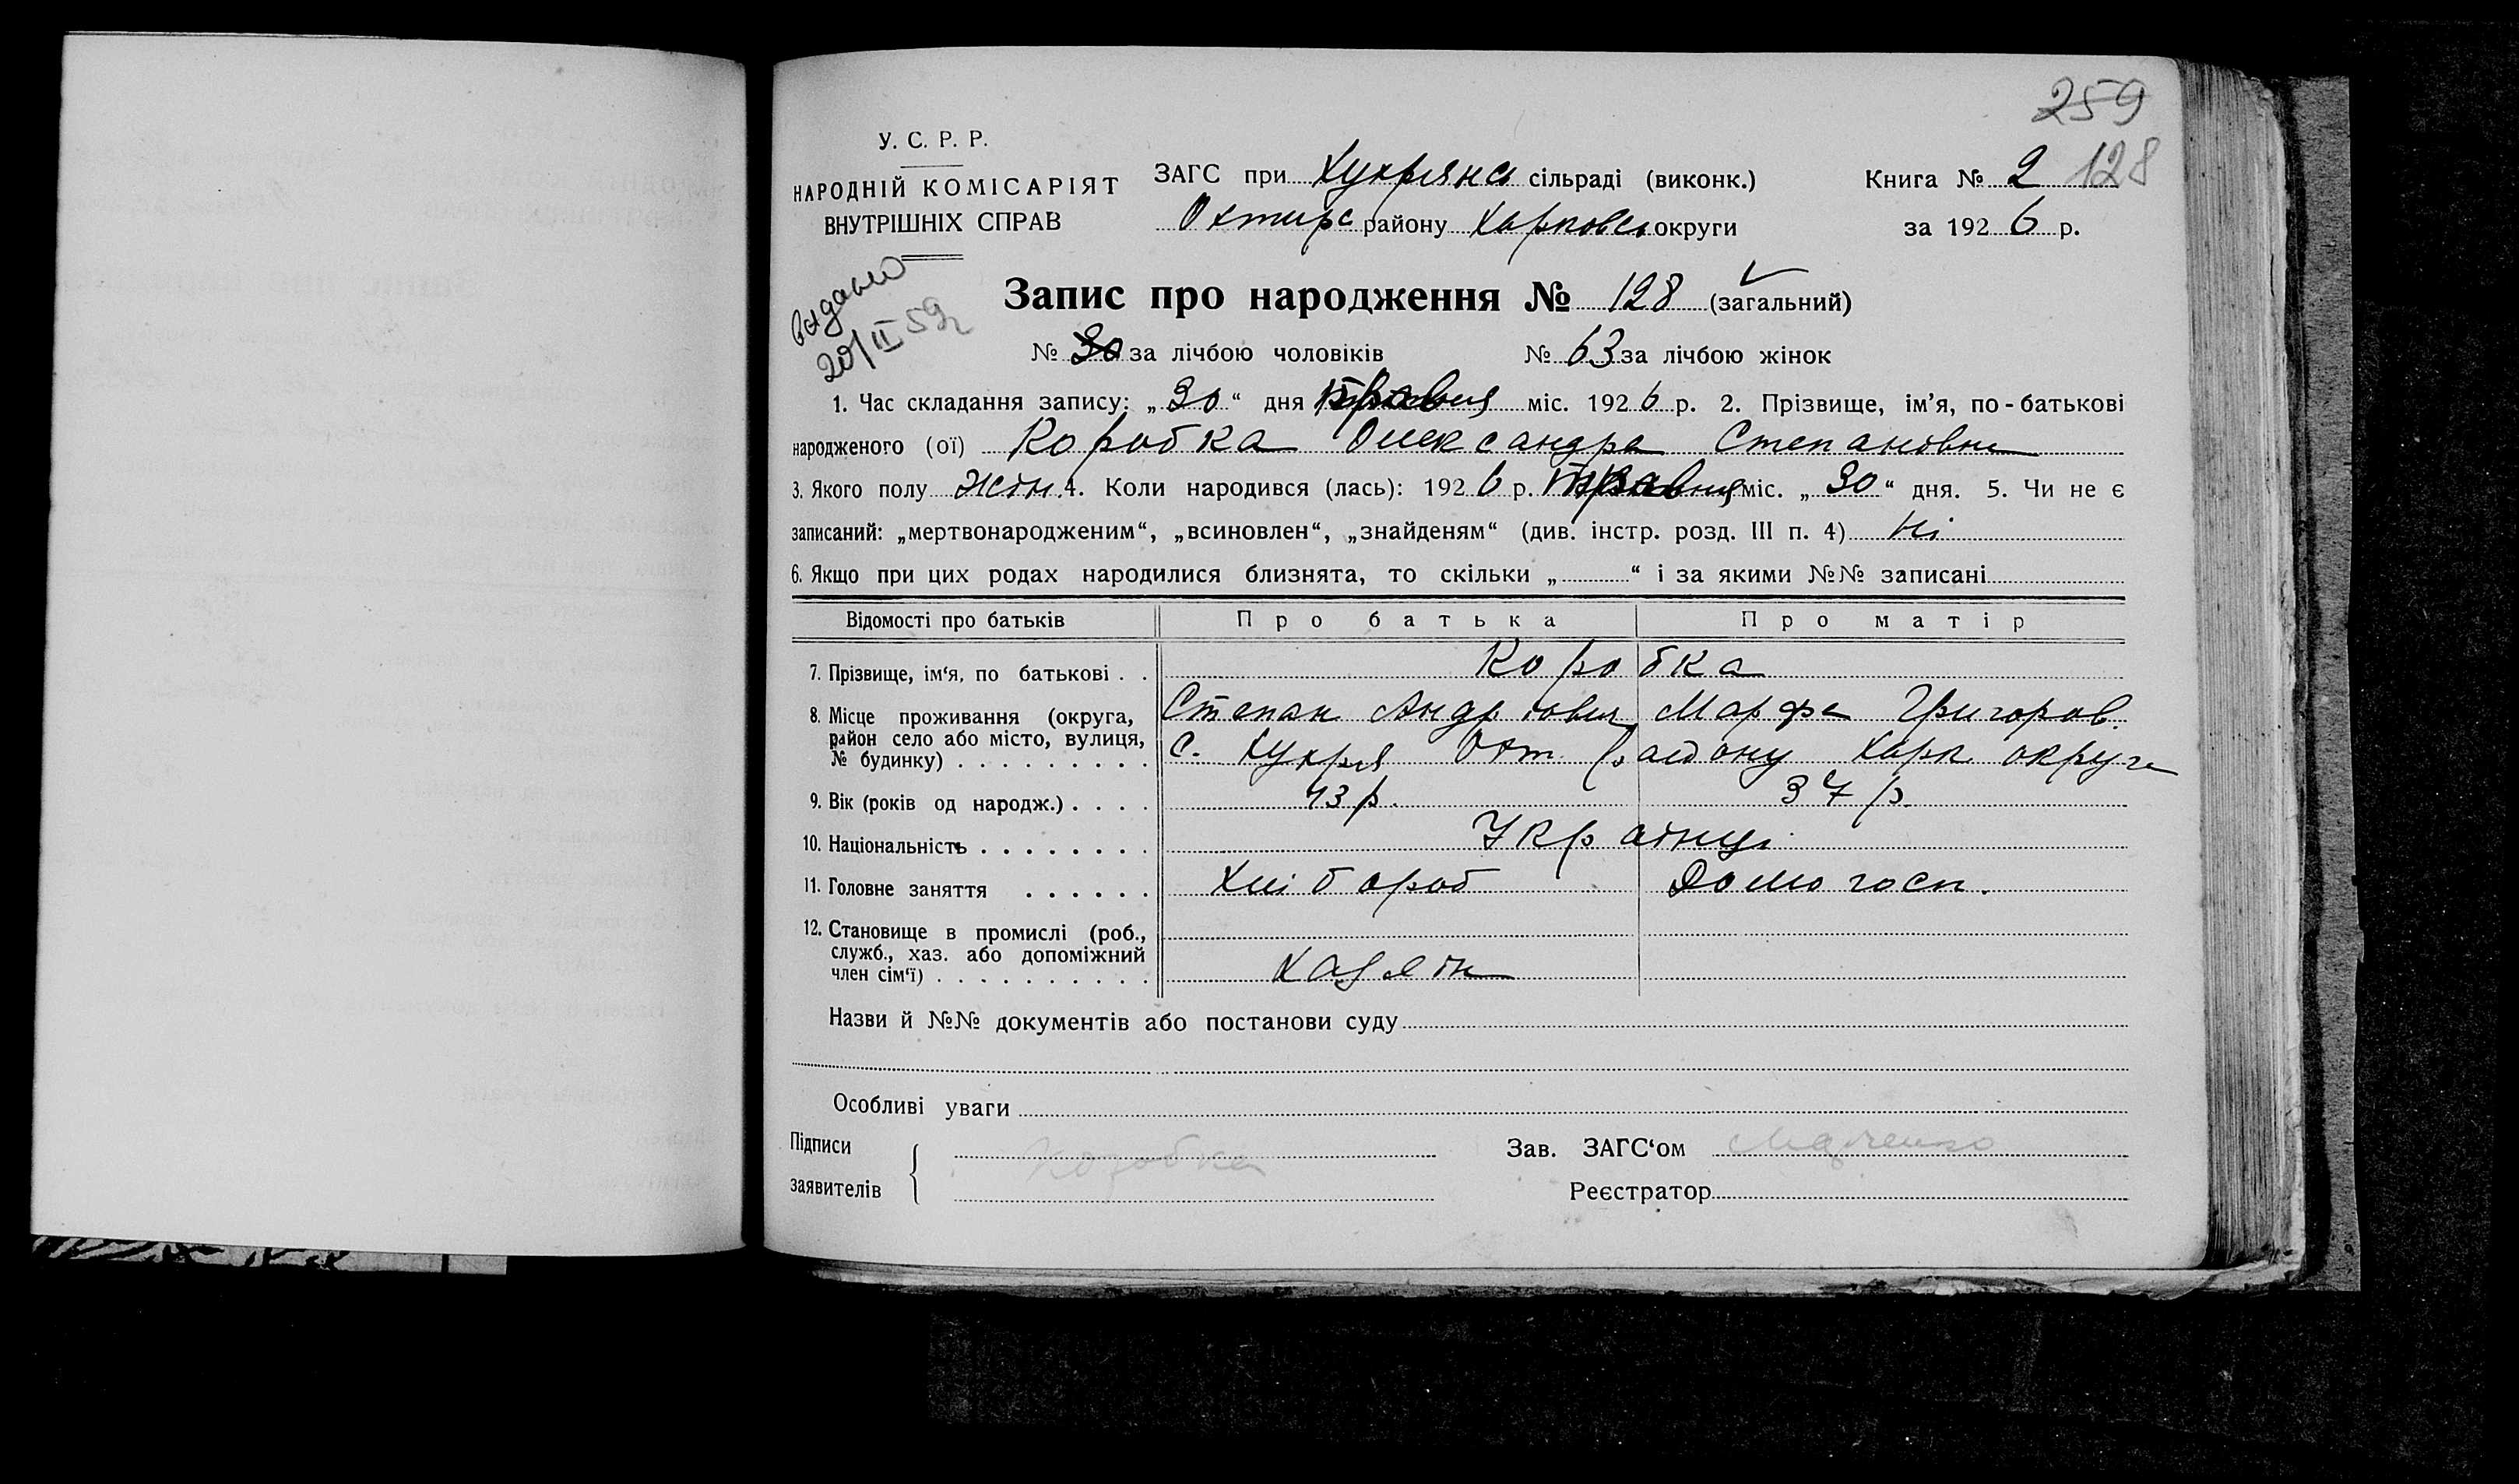 259
У. С. Р. Р.
НАРОДНІЙ КОМІСАРІЯТ
ВНУТРІШНІХ СПРАВ
ЗАГС при Хухрянс сільраді (виконк.)
Охтирс району Харковсь округи
Книга № 2 128
за 1926 р.
видано
20/II 59р
Запис про народження № 128 (загальний)
№ 30 за лічбою чоловіків № 63 за лічбою жінок
1. Час складання запису: „30“ дня травня міс. 1926 р. 2. Прізвище, ім’я, по-батькові
народженого (ої) Коробка Олександра Степановна
3. Якого полу жін. 4. Коли народився (лась): 1926 р. травня міс. „30“ дня. 5. Чи не є
записаний: „мертвонародженим“, „всиновлен“, „знайденям“ (див. інстр. розд. III п. 4) Ні
6. Якщо при цих родах народилися близнята, то скільки „ “ і за якими №№ записані
Відомості про батьків Про батька Про матір
7. Прізвище, ім‘я, по батькові . . Коробка
Степан Андріович Марфа Григоров.
8. Місце проживання (округа,
район село або місто, вулиця,
№ будинку) . . . . . . . . . с. Хухря Охт. району Харк округи
9. Вік (років од народж.) . . . . 43 р. 37 р.
10. Національність . . . . . . . . Українці
11. Головне заняття . . . . . . Хлібороб Домогосп.
12. Становище в промислі (роб.,
служб., хаз. або допоміжний
член сім‘ї) . . . . . . . . . . Хазяїн
Назви й №№ документів або постанови суду
Особливі уваги
Підписи
заявителів
Коробка
Зав. ЗАГС‘ом
Реєстратор